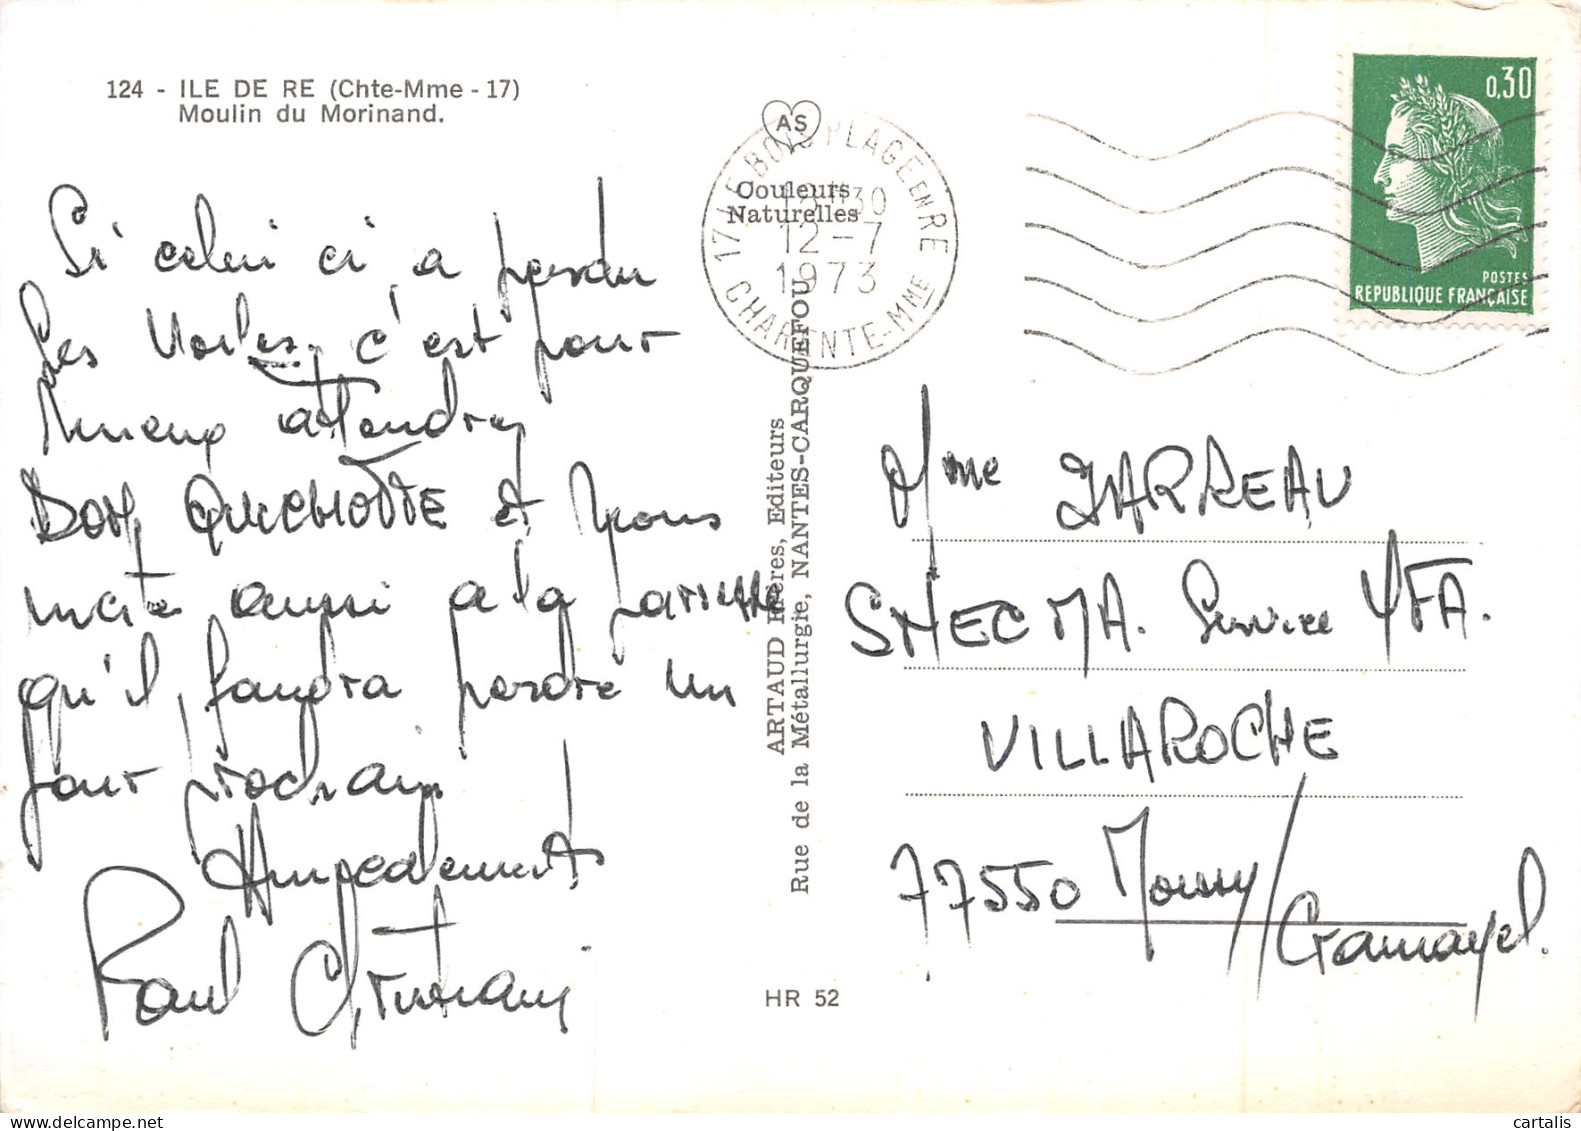 124 - ILE DE RE (Chte-Mme - 17)
Moulin du Morinand.
Si celui ci a perdu
ses Voiles, c'est pour
mieux attendre
DON QUICHOTTE et nous
incite aussi a la paresse
qu'il faudra perdre un
jour prochain
Amicalement
Paul Christiany
AS
Couleurs
Naturelles
17 LE BOIS PLAGE EN RE
12H30
12-7
1973
CHARENTE-MME
ARTAUD Frères, Editeurs
Rue de la Métallurgie, NANTES-CARQUEFOU
HR 52
0,30
POSTES
REPUBLIQUE FRANÇAISE
Mme JARREAU
SNECMA. Service YFA.
VILLAROCHE
77550 Moissy/Cramayel.
cartalis